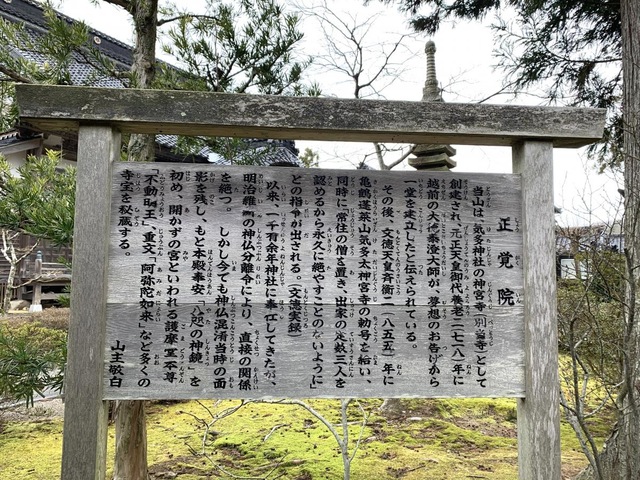 正覚院
当山は、気多神社の神宮寺(別当寺)として
創建され、元正天皇御代養老二(七一八)年に
越前の大徳泰澄大師が、夢想のおつげから
一堂を建立したと伝えられている。
その後、文徳天皇斉衡二(八五五)年に
亀鶴蓬莱山気多大神宮寺の勅号を給い、
同時に常住の僧を置き、出家の定数三人を
認めるから永久に絶やすことのないように
との指令が出される。(文徳実録)
以来、一千有余年神社に奉仕してきたが、
明治維新の神仏分離令により、直接の関係
を絶つ。しかし今でも神仏混淆当時の面
影を残し、もと本殿奉安「八咫の神鏡」を
初め、開かずの宮といわれる護摩堂本尊
「不動明王」重文、「阿弥陀如来」など多くの
寺宝を秘蔵する。
山主敬白